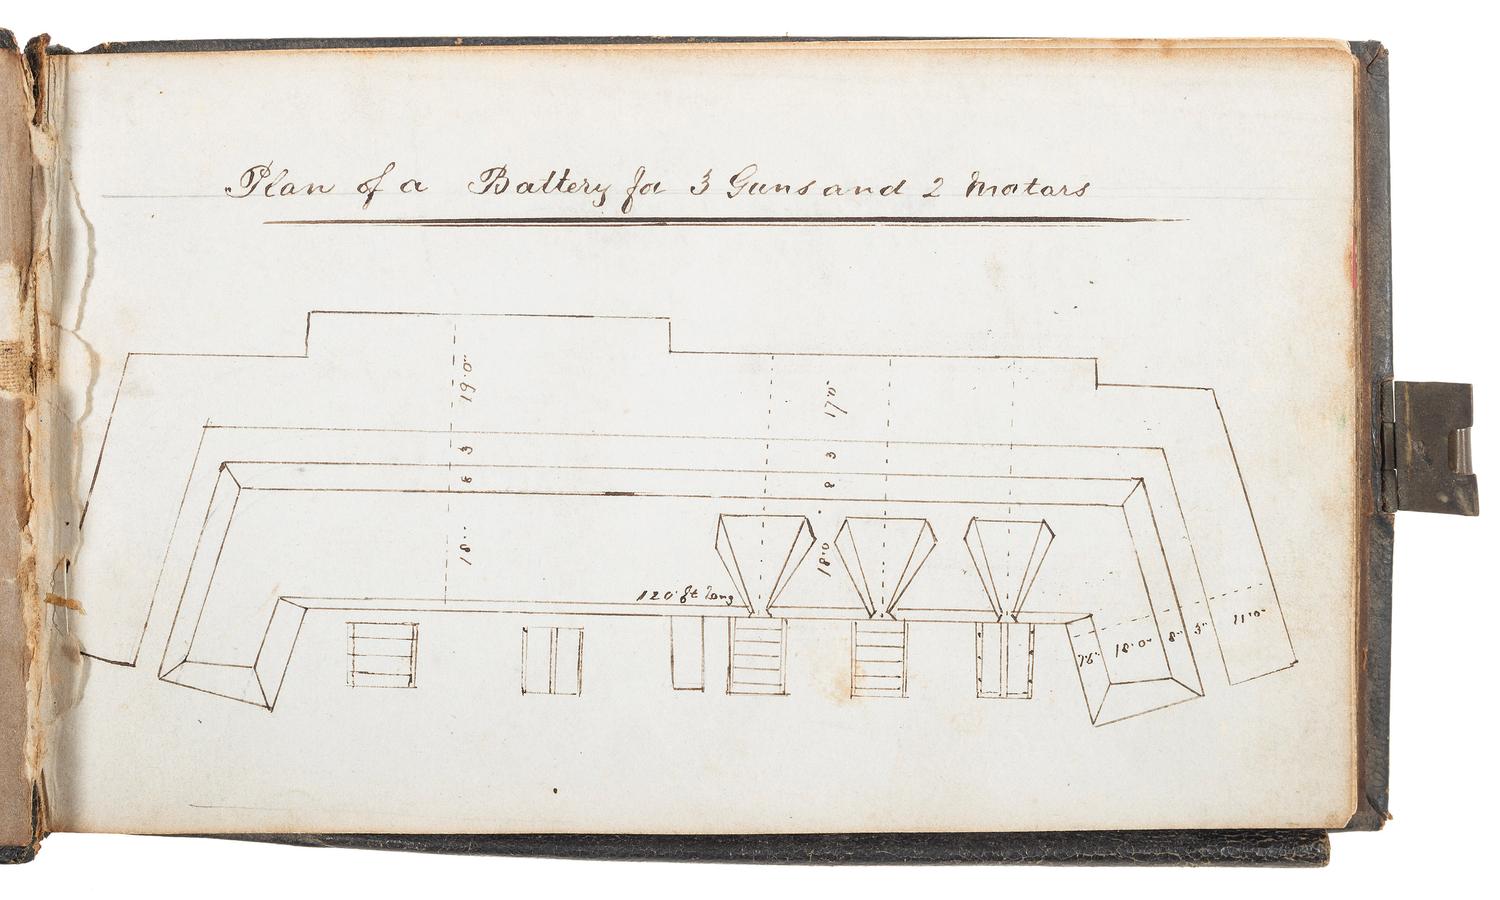 Plan of a Battery for 3 Guns and 2 Mortars
19.0"
17.0"
3
3
8
8
18..
18.0
120 ft long
18.0
8"
3"
11.0